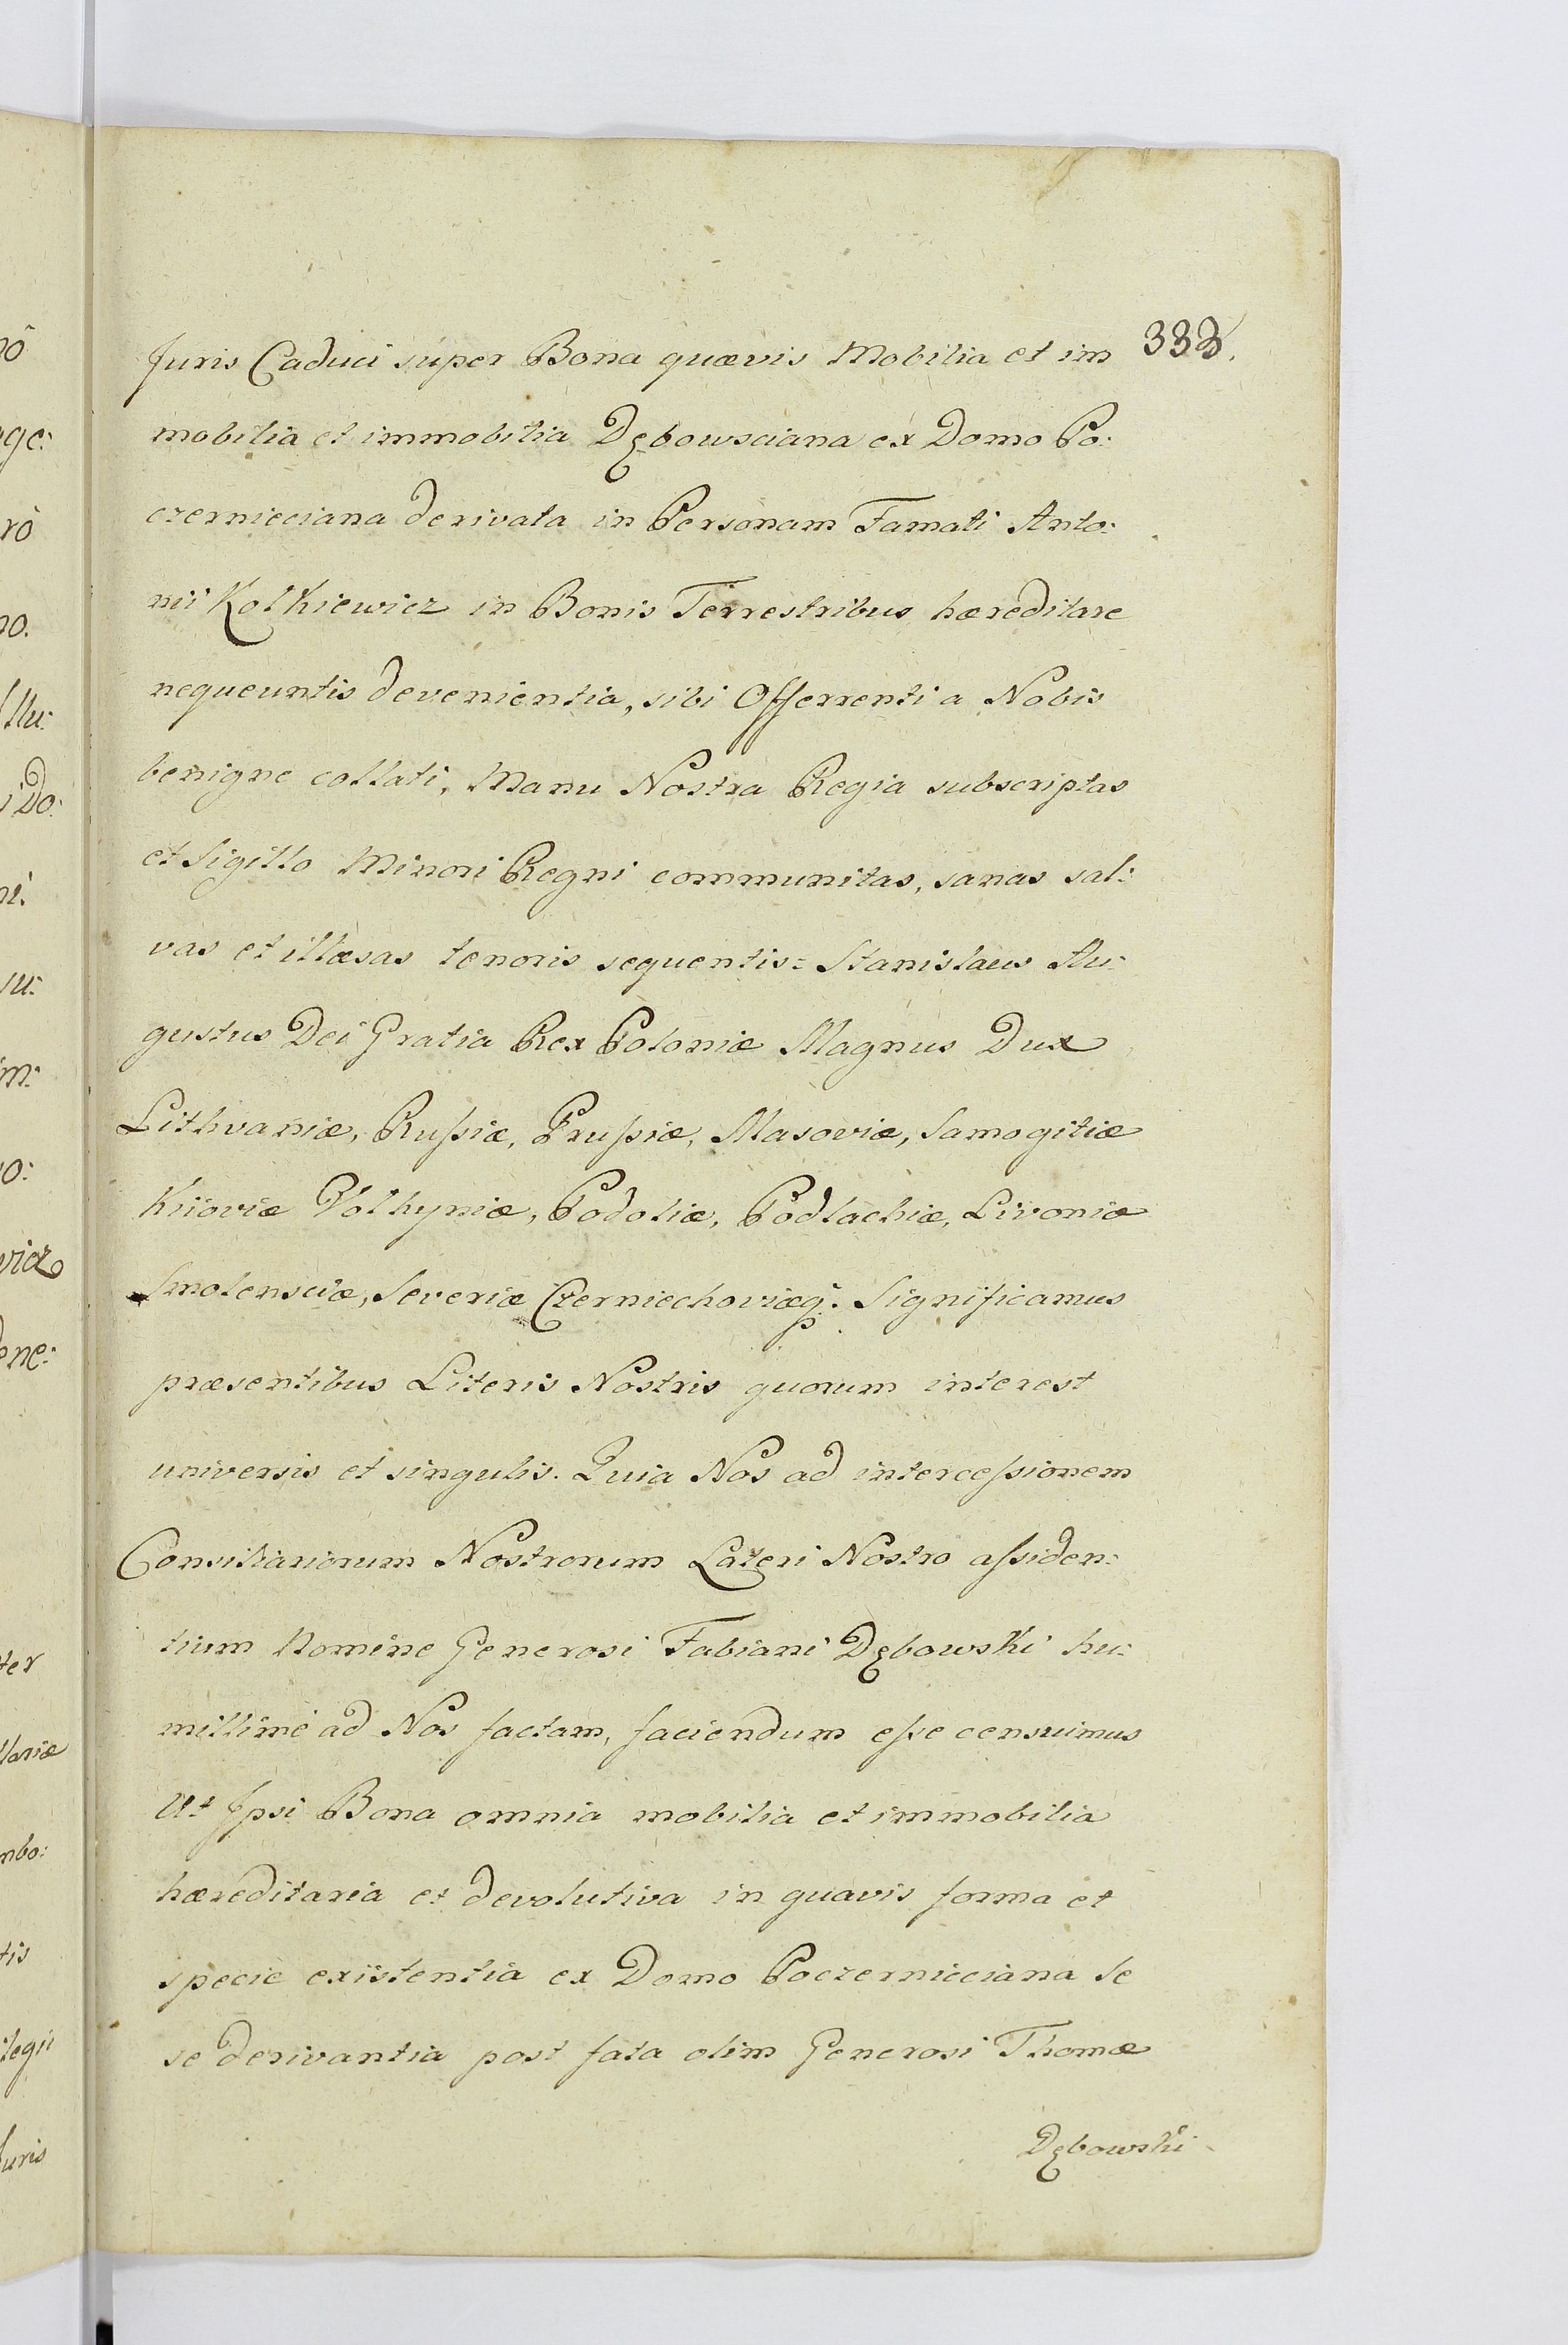 333.
Juris Caduci super Bona quævis Mobilia et im
mobilia et immobilia Dębowsciana ex Domo Po:
czernicciana derivata in Personam Famati Anto:
nii Kolkiewicz in Bonis Terrestribus hæreditare
nequeuntis devenientia, sibi Offerrenti a Nobis
benigne collati, Manu Nostra Regia subscriptas
et Sigillo Minori Regni communitas, sanas sal:
vas et illæsas tenoris sequentis = Stanislaus Au:
gustus Dei Gratia Rex Poloniæ Magnus Dux
Lithvaniæ, Rußiæ, Prußiæ, Masoviæ, Samogitiæ
Kiioviæ Volhyniæ, Podoliæ, Podlachiæ, Livoniæ
Smolensciæ, Severiæ Czerniechoviæq. Significamus
præsentibus Literis Nostris quorum interest
universis et singulis. Quia Nos ad interceßionem
Consiliariorum Nostrorum Lateri Nostro aßiden:
tium Nomine Generosi Fabiani Dębowski hu:
millimè ad Nos factam, faciendum eße censuimus
Ut Ipsi Bona omnia mobilia et immobilia
hæreditaria et devolutiva in quavis forma et
specie existentia ex Domo Poczernicciana Se
se derivantia post fata olim Generosi Thomæ
Dębowski